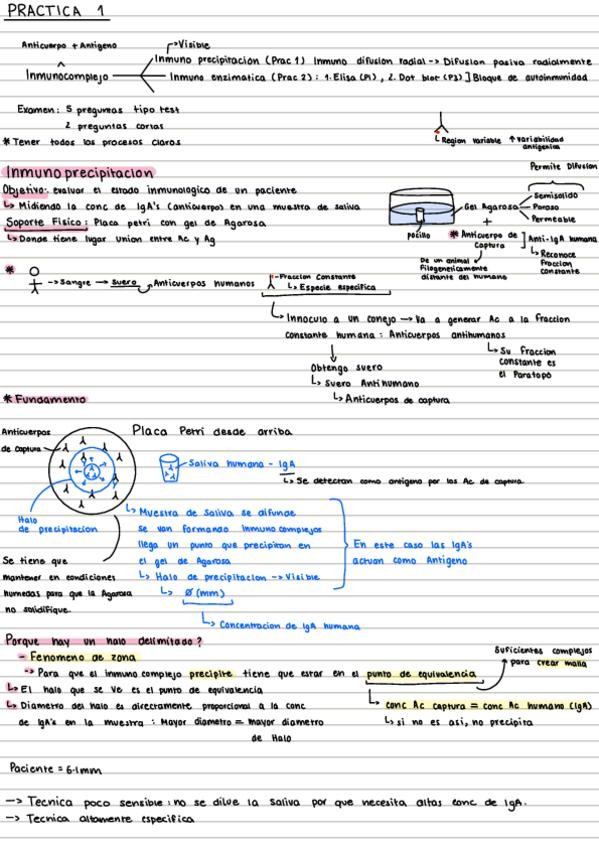 PRACTICA 1
Anticuerpo + Antigeno
Visible
Inmunocomplejo
Inmuno precipitacion (Prac 1) Inmuno difusion radial -> Difusion pasiva radialmente
Inmuno enzimatica (Prac 2) : 1. Elisa (P1) , 2. Dot blot (P3) ] Bloque de autoinmunidad
Examen: 5 preguntas tipo test
2 preguntas cortas
* Tener todos los procesos claros
Region variable ↑ variabilidad
antigenica
Inmunoprecipitacion
Objetivo: evaluar el estado inmunologico de un paciente
↳ Midiendo la conc de IgA's (anticuerpo) en una muestra de saliva
Soporte Fisico: Placa petri con gel de Agarosa
↳ Donde tiene lugar union entre Ac y Ag
Permite Difusion
Gel Agarosa
Semisolido
Poroso
Permeable
+
pocillo
* Anticuerpo de
captura
] Anti-IgA humana
↳ Reconoce
fraccion
constante
De un animal
Filogeneticamente
distante del humano
* -> Sangre -> Suero Anticuerpos humanos
Fraccion constante
↳ Especie especifica
↳ Innoculo a un conejo -> Va a generar Ac a la fraccion
constante humana : Anticuerpos antihumanos
↳ Su fraccion
constante es
el Paratopo
Obtengo suero
↳ Suero Antihumano
↳ Anticuerpos de captura
* Fundamento
Anticuerpos
de captura
Placa Petri desde arriba
Saliva humana - IgA
↳ Se detectan como antigeno por las Ac de captura
Halo
de precipitacion
↳ Muestra de Saliva se difunde
se van formando inmuno complejos
llega un punto que precipitan en
el gel de Agarosa
↳ Halo de precipitacion -> Visible
↳ ø (mm)
↳ Concentracion de IgA humana
En este caso las IgA's
actuan como Antigeno
Se tiene que
mantener en condiciones
humedas para que la Agarosa
no solidifique.
Porque hay un halo delimitado?
- Fenomeno de zona
-> Para que el inmuno complejo precipite tiene que estar en el punto de equivalencia
Suficientes complejos
para crear malla
↳ El halo que se ve es el punto de equivalencia
↳ conc Ac captura = conc Ac humano (IgA)
↳ si no es asi, no precipita
↳ Diametro del halo es directamente proporcional a la conc
de IgA's en la muestra : Mayor diametro = mayor diametro
de Halo
Paciente = 6.1mm
-> Tecnica poco sensible : no se dilue la saliva por que necesita altas conc de IgA.
-> Tecnica altamente especifica